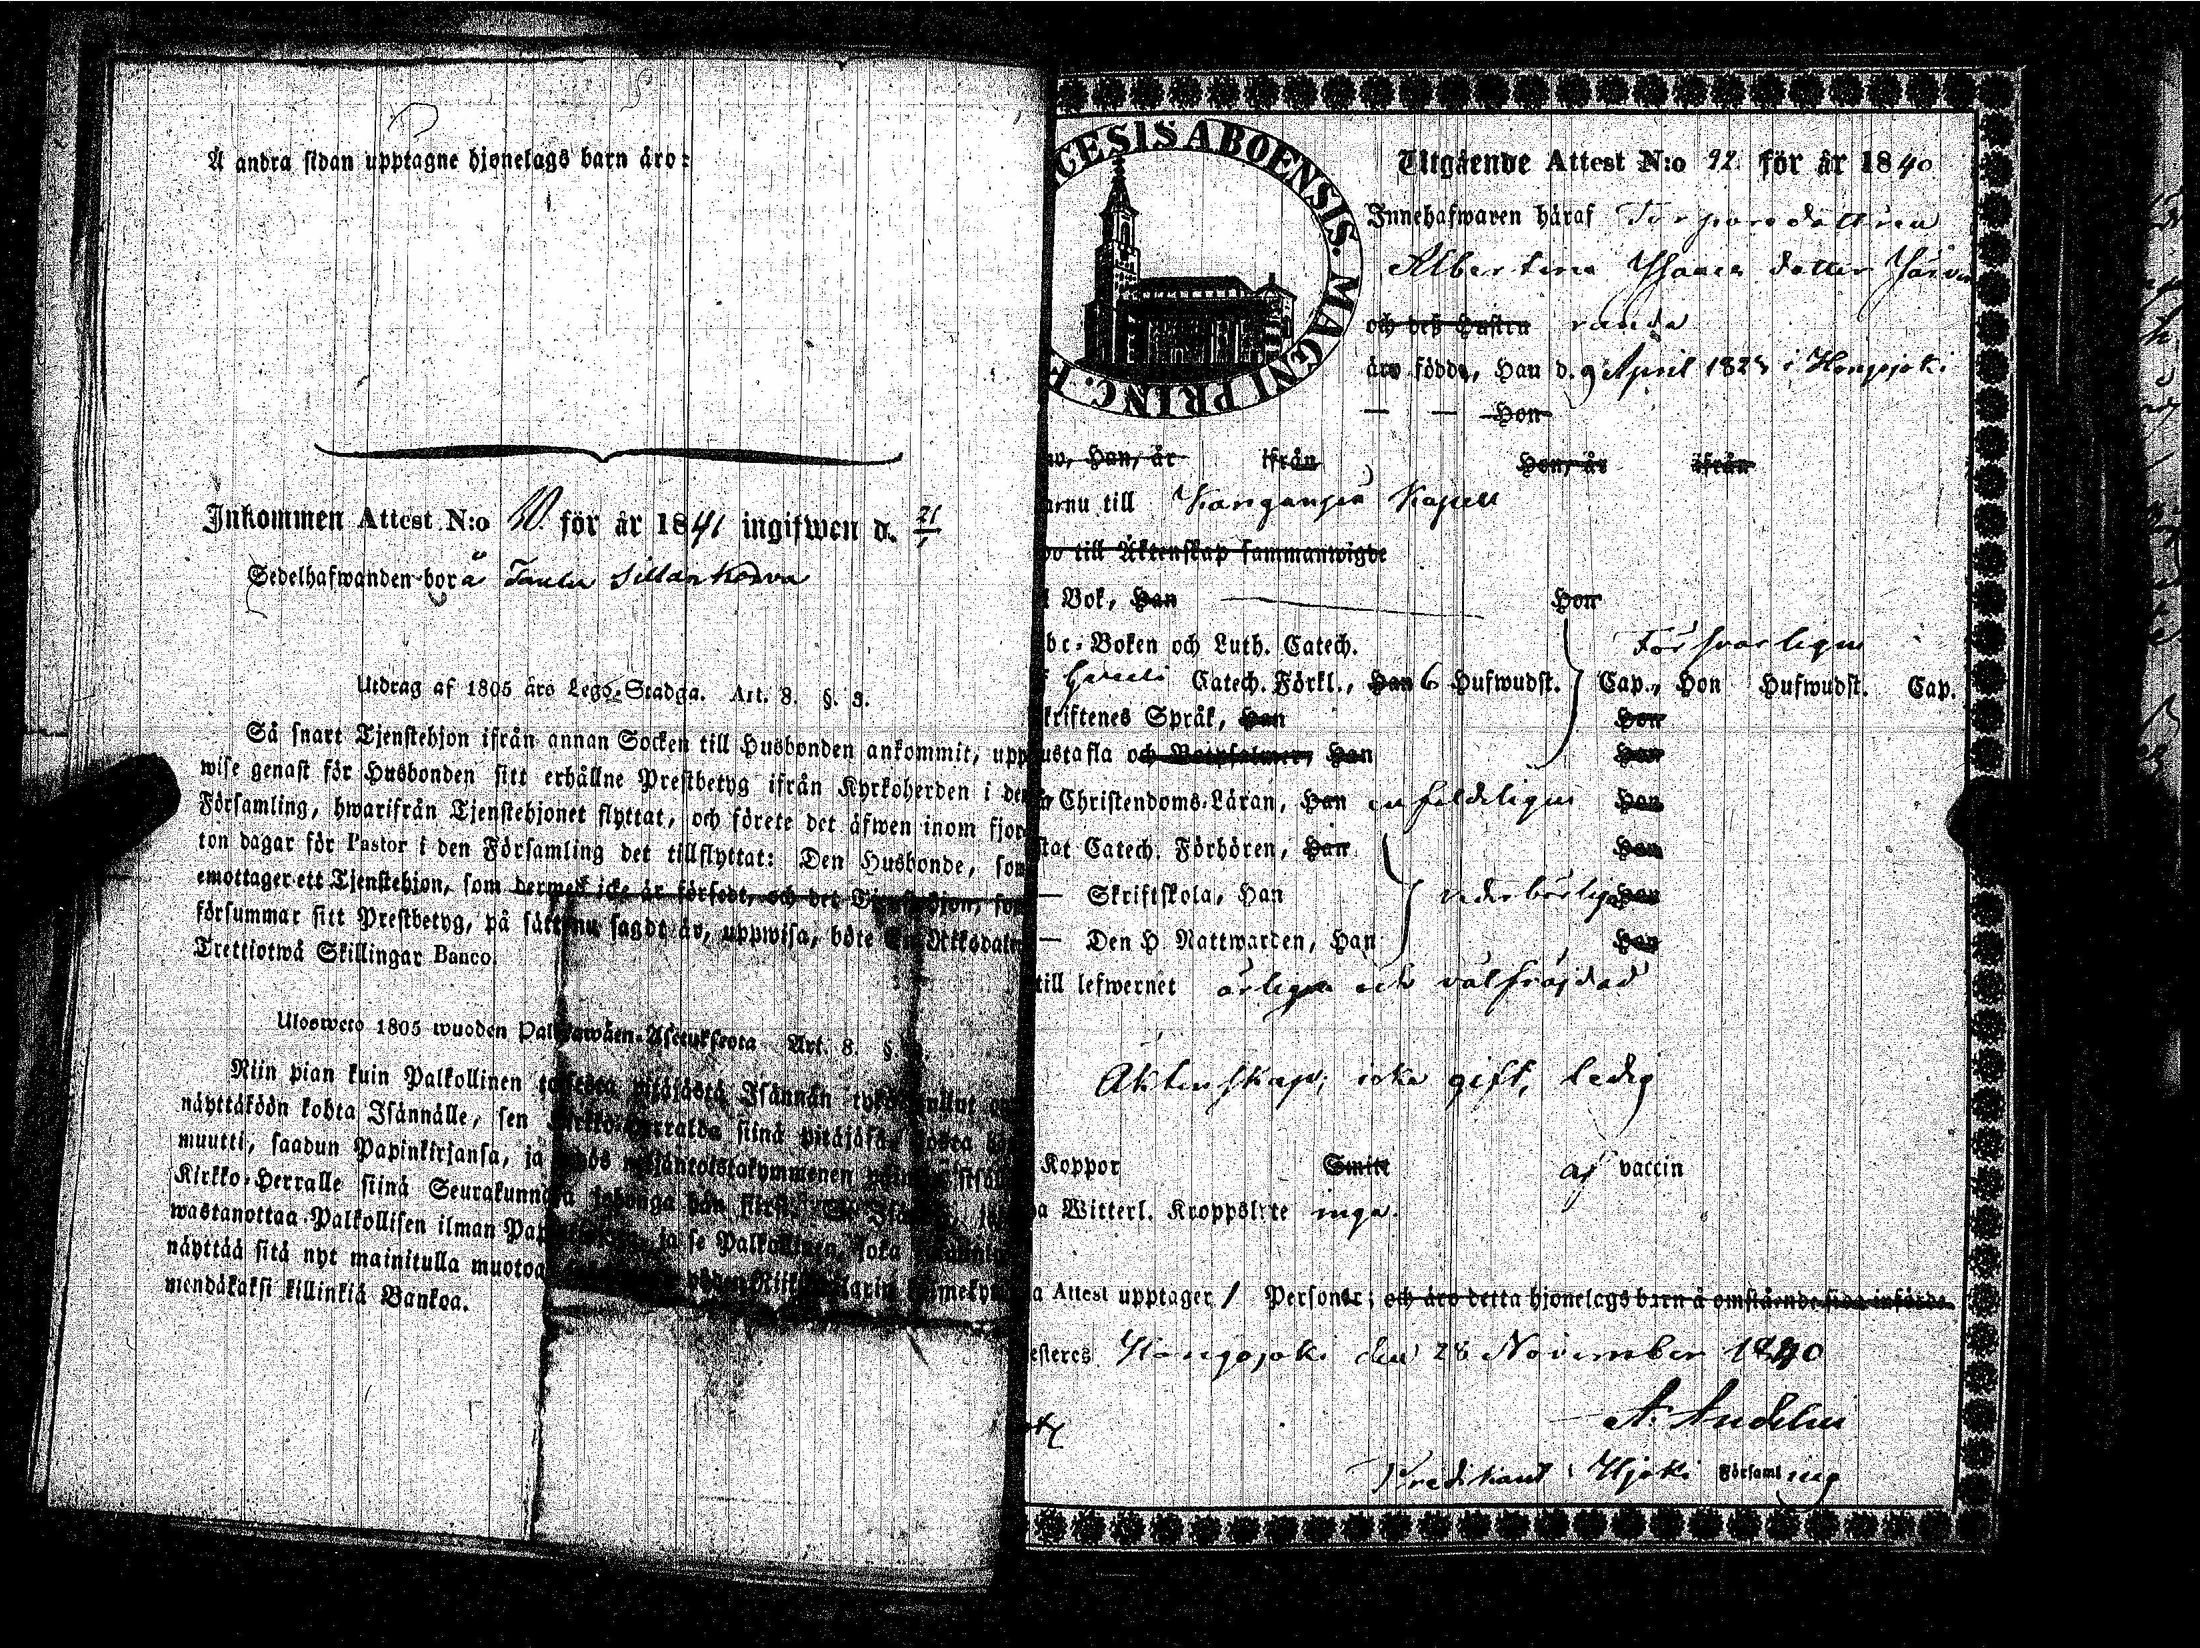 Å andra sidan upptagne hjonelags barn äro:
Inkommen Attest N:o 10 för år 1841 ingifwen d. 21/1
Sedelhafwanden bor å Sillankorva
Utdrag af 1805 års Lego-Stadga. Art. 8. §. 3.
Så snart Tjenstehjon ifrån annan Socken till Husbonden ankommit, upp
wise genast för Husbonden sitt erhållne Prestbetyg ifrån Kyrkoherden i den
Församling, hwarifrån Tjenstehjonet flyttat, och förete det äfwen inom fjor
ton dagar för Pastor i den Församling det tillflyttat: Den Husbonde, som
emottager ett Tjenstehjon, som dermed icke är försedt, och det Tjenstehjon, som
försummar sitt Prestbetyg, på sätt nu sagdt är, uppwisa, böte En Riksdaler
Trettiotwå Skillingar Banco.
Ulosweto 1805 wuoden Palkkawäen-Asetuksesta Art. 8. §.
Niin pian kuin Palkollinen toisesta pitäjästä Isännän tykö tullut on
näyttäköön kohta Isännälle, sen Kirkko-Herralda siinä pitäjäsä, josta
muutti, saadun Papinkirjansa, ja myös neljäntoistakymmenen päiwän sisäll
Kirkko-Herralle siinä Seurakunnasa johonga hän siirsi. Se Isändä, joka
wastanottaa Palkollisen ilman Papinkirjata, ja se Palkollinen, joka
näyttää sitä nyt mainitulla muotoa Riikin
mendäkaksi killinkiä Bankoa.
CESIS ABOENSIS. MAGNI PRINC. F
Utgående Attest N:o 92. för år 1840
Innehafwaren häraf Torparedottren
Albertina Isaacs dotter Järven
och deß Hustru randa
äro födde, Han d. 9 April 1823 i Hongojoki
— — Hon
Han, är ifrån Hon, är ifrån
arnu till Kanganpää Kapell
till Äktenskap sammanwigde
Bok, Han Hon
bc-Boken och Luth. Catech. Försvarligen
Catech. Förkl., Han 6 Hufwudst. Cap., Hon Hufwudst. Cap.
kriftenes Språk, Han Hon
ustafla och Botpsalmer, Han Hon
Christendoms-Läran, Han enfaldeligen Hon
stat Catech. Förhören, Han Hon
— Skriftskola, Han vederbörligen Hon
— Den H. Nattwarden, Han Hon
till lefwernet ärligen och välfräjdad
Äktenskap; icke gift, ledig
Koppor Smitt af vaccin
a Witterl. Kroppslyte inga.
a Attest upptager 1 Personer; och äro detta hjonelags barn å omstående sida införde.
esteres Hongojoki den 28 November 1840
Predikant i Hjoki Församling